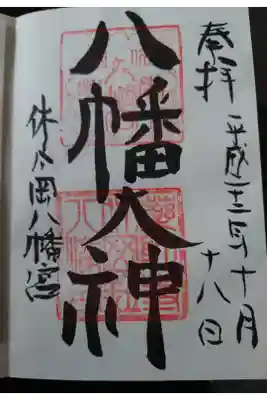 奉拝
平成二十二年十月
十八日
八幡大神
休ヶ岡八幡宮